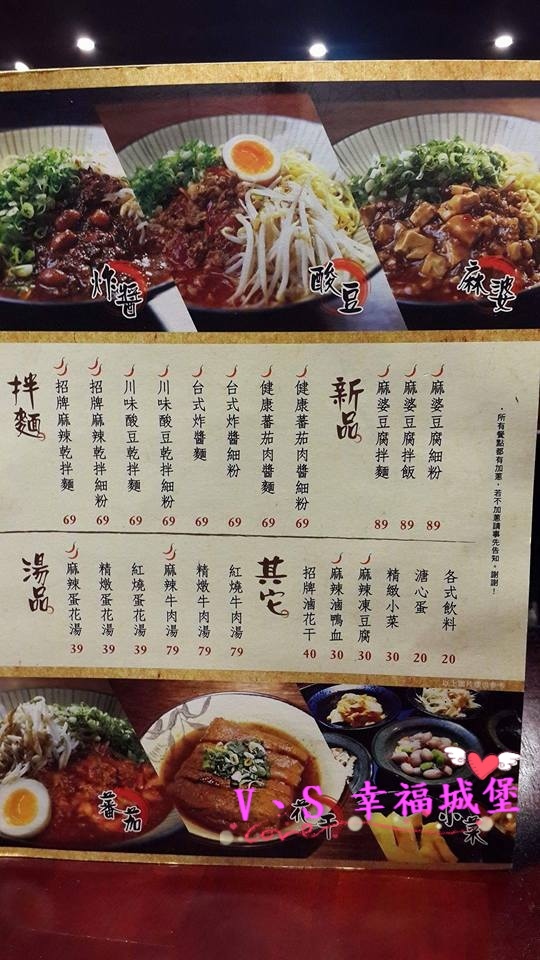 炸醬
酸豆
麻婆
新品
麻婆豆腐細粉 89
麻婆豆腐拌飯 89
麻婆豆腐拌麵 89
・所有餐點都有加蔥，若不加蔥請事先告知。謝謝！
拌麵
健康蕃茄肉醬細粉 69
健康蕃茄肉醬麵 69
台式炸醬細粉 69
台式炸醬麵 69
川味酸豆乾拌細粉 69
川味酸豆乾拌麵 69
招牌麻辣乾拌細粉 69
招牌麻辣乾拌麵 69
其它
各式飲料 20
溏心蛋 20
精緻小菜 30
麻辣凍豆腐 30
麻辣滷鴨血 30
招牌滷花干 40
湯品
紅燒牛肉湯 79
精燉牛肉湯 79
麻辣牛肉湯 79
紅燒蛋花湯 39
精燉蛋花湯 39
麻辣蛋花湯 39
以上圖片僅供參考
蕃茄
花干
小菜
V、S 幸福城堡